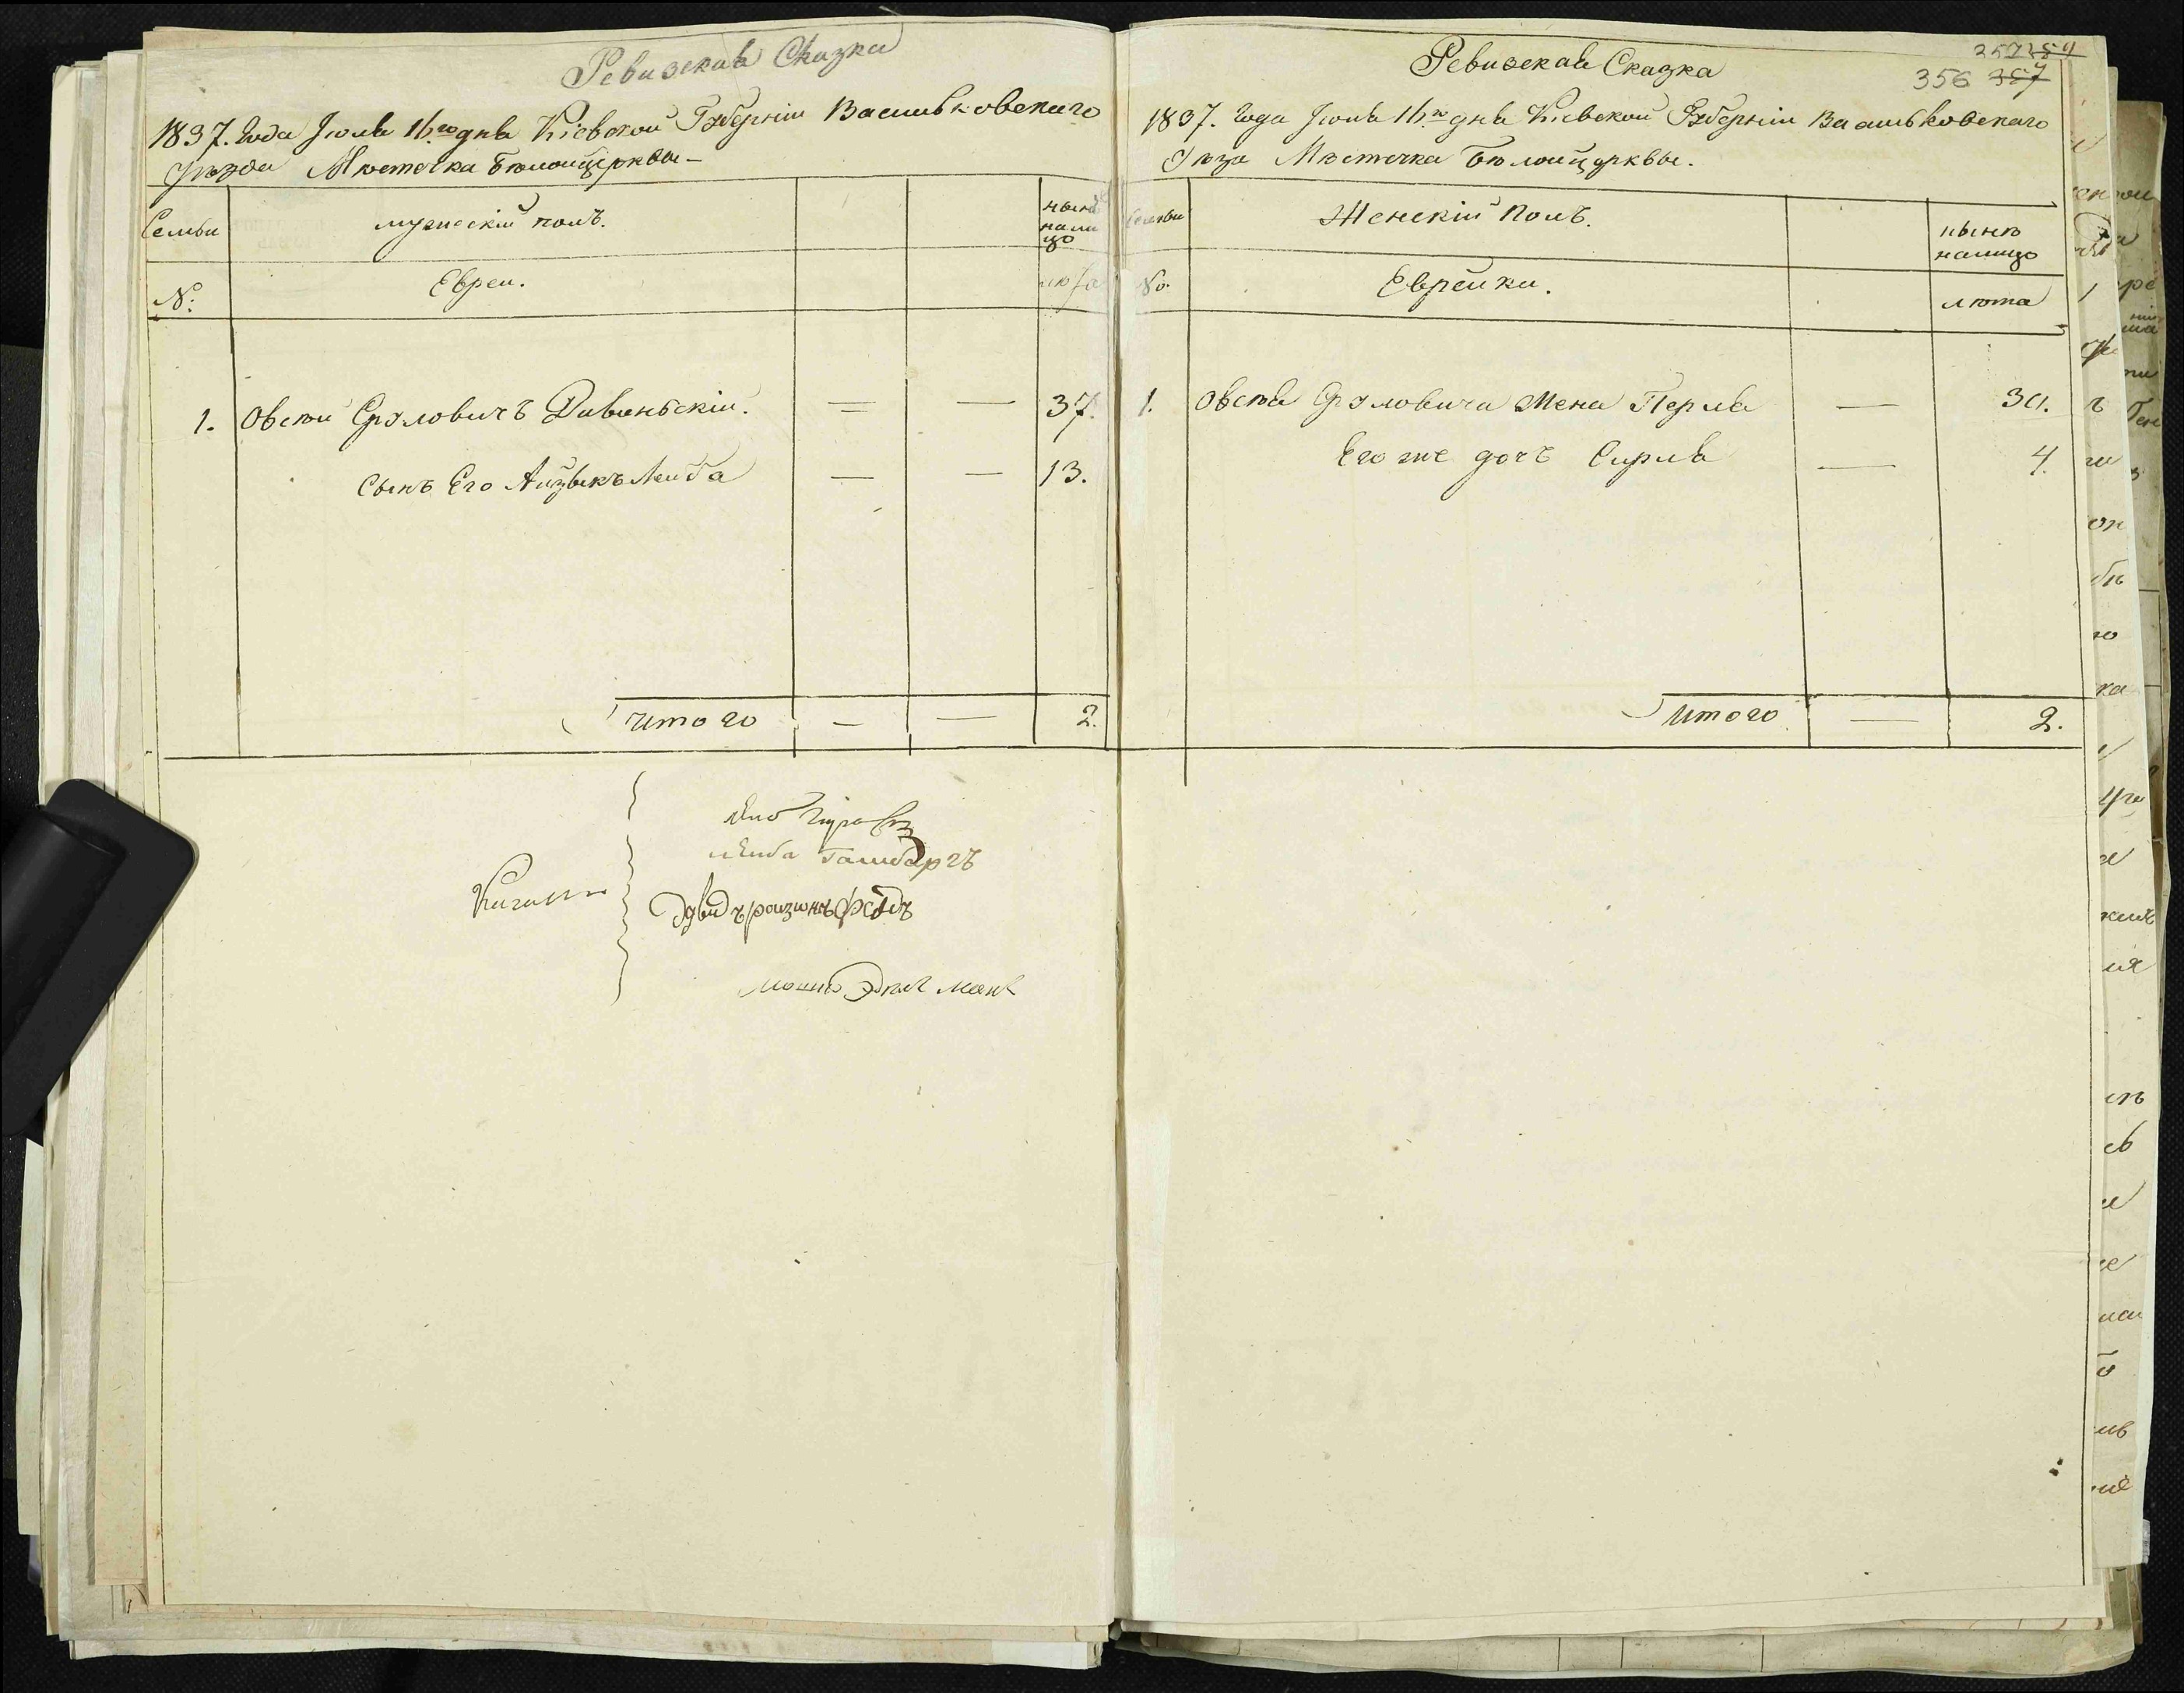 Ревизская Сказка
1837. Года Июля 16го дня Кіевской Губерніи Васильковскаго
уѣзда Мѣстечка Бѣлоицерквы
Семьи
мужескій полъ.
нынѣ
нали
цо
№.
Евреи.
лѣта
1. Овсѣй Сруловичъ Ливеньскій. — — 37.
сынъ Его Айзыкъ Лейба — — 13.
итого — — 2.
лейба
Давидъ
мошко
357
356 357
Ревизская Сказка
1837. Года Июля 16го дня Кіевской Губерніи Васильковскаго
Уѣза Мѣстечка Бѣлойцерквы.
Семьи
Женскій полъ.
нынѣ
налицо
№.
Еврейки.
лѣта
1. Овсѣя Сруловича Жена Перля — 30.
Его же дочъ Сирля — 4.
Итого — 2.